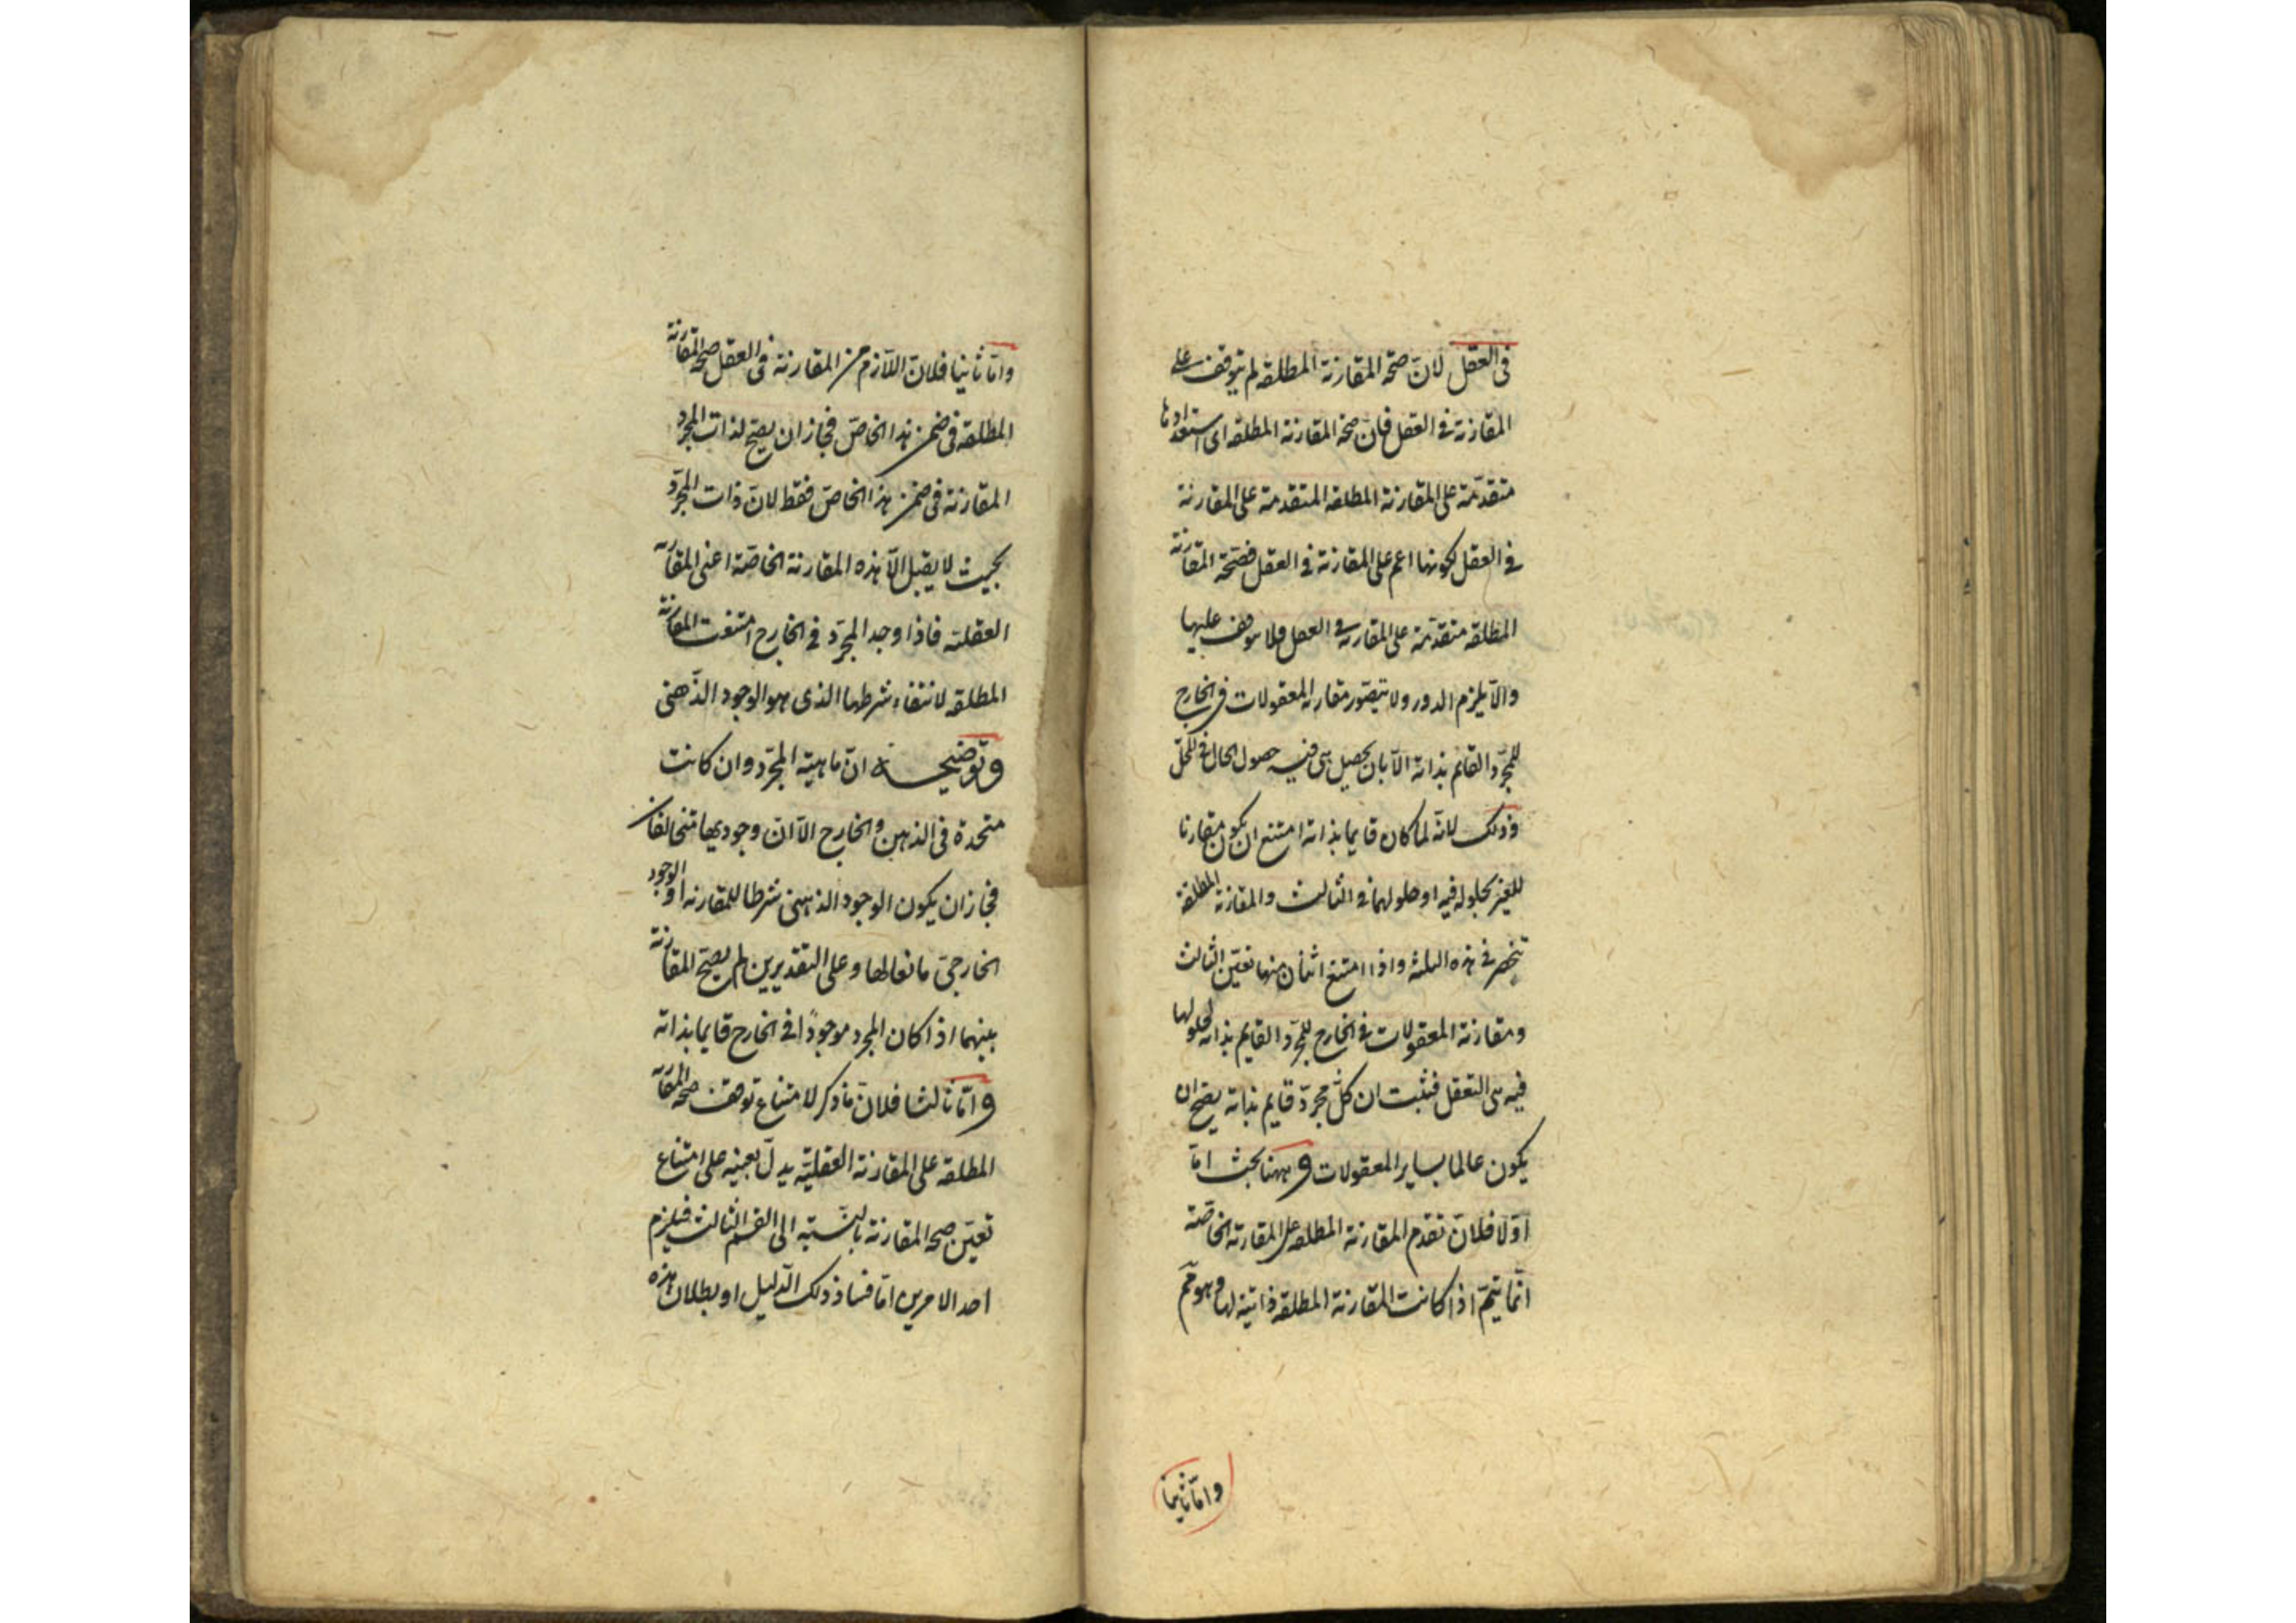 في العقل لان صحة المقارنة المطلقة لم تتوقف على
المقارنة في العقل فان صحة المقارنة المطلقة اى استعدادها
متقدمة على المقارنة المطلقة المتقدمة على المقارنة
في العقل لكونها اعم على المقارنة في العقل فصحة المقارنة
المطلقة متقدمة على المقارنة في العقل فلا توقف عليها
والا يلزم الدور ولا يتصور مقارنة المعقولات في الخارج
للمجرد القائم بذاته الا بان يحصل هى فيه حصول الحال في المحل
وذلك لانه لما كان قايما بذاته امتنع ان يكون مقارنا
للغير بحلوله فيه او حلولهما في الثالث والمقارنة المطلقة
تنحصر في هذه الثلثة واذا امتنع اثنان منها تعين الثالث
ومقارنة المعقولات في الخارج للمجرد القايم بذاته لحلولها
فيه هى التعقل فثبت ان كل مجرد قايم بذاته يصح ان
يكون عالما بساير المعقولات وههنا بحث اما
اولا فلان تقدم المقارنة المطلقة على المقارنة الخاصة
انما يتم اذا كانت المقارنة المطلقة ذاتية لها وهو مم
واما ثانيا
واما ثانيا فلان اللازم من المقارنة في العقل صحة المقارنة
المطلقة في ضمن هذا الخاص فجاز ان يصح لذات المجرد
المقارنة في ضمن هذا الخاص فقط لان ذات المجرد
بحيث لا يقبل الا هذه المقارنة الخاصة اعنى المقارنة
العقلية فاذا وجد المجرد في الخارج امتنعت المقارنة
المطلقة لانتفاء شرطها الذى هو الوجود الذهنى
وتوضيحه ان ماهية المجرد وان كانت
متحدة في الذهن والخارج الا ان وجوديها متخالفان
فجاز ان يكون الوجود الذهنى شرطا للمقارنة او الوجود
الخارجى مانعا لها وعلى التقديرين لم يصح المقارنة
بينهما اذا كان المجرد موجودا في الخارج قايما بذاته
واما ثالثا فلان ما ذكر لامتناع توقف صحة المقارنة
المطلقة على المقارنة العقلية يدل بعينه على امتناع
تعين صحة المقارنة بالنسبة الى القسم الثالث فيلزم
احد الامرين اما فساد ذلك الدليل او بطلان هذه